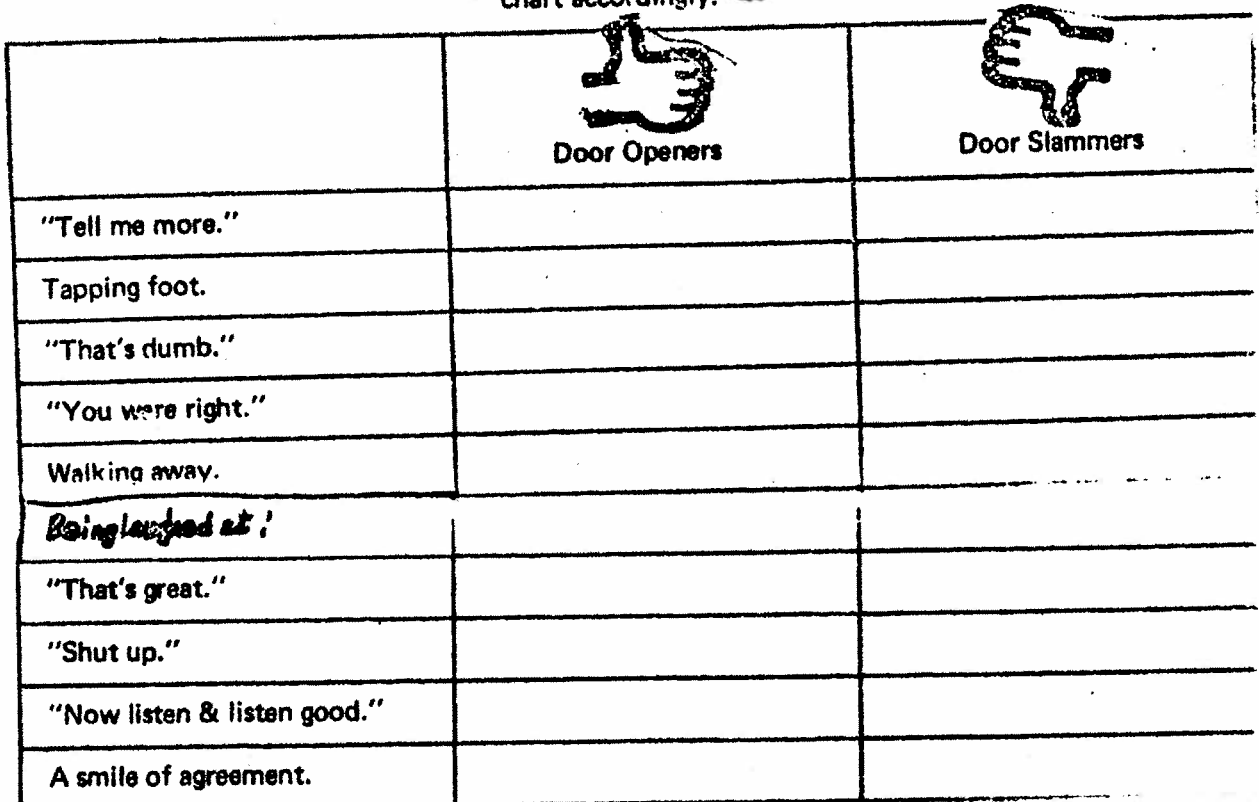 chart accordingly.
Door Openers
Door Slammers
"Tell me more."
Tapping foot.
"That's dumb."
"You were right."
Walking away.
Being laughed at !
"That's great."
"Shut up."
"Now listen & listen good."
A smile of agreement.